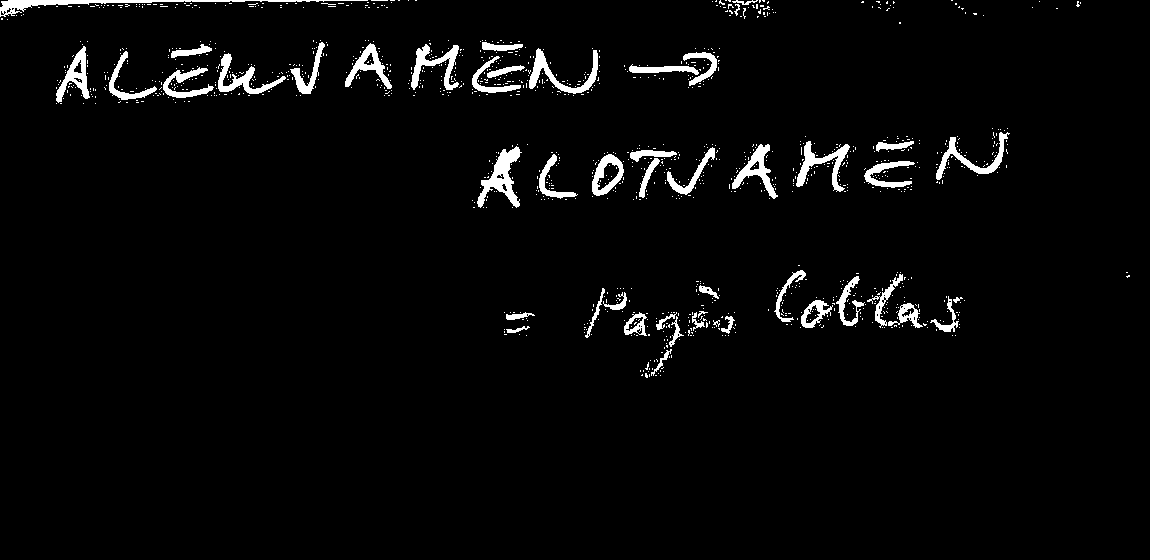 ALEUVAMEN →
ALOTVAMEN
= Pagès Coblas